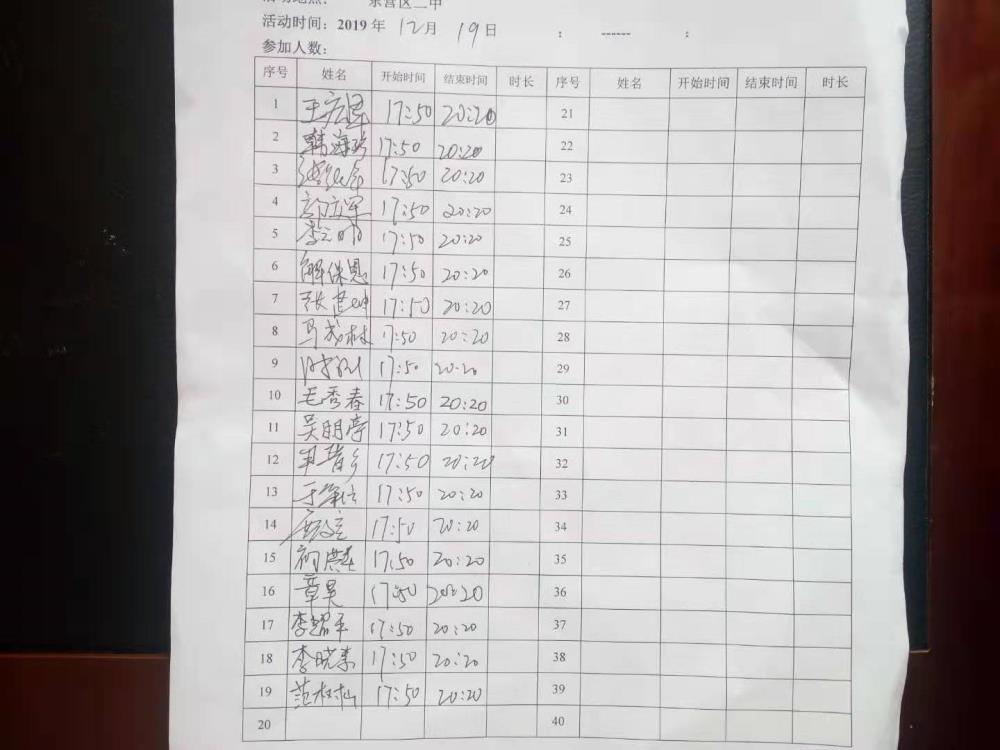 东营区二中
活动时间：2019 年 12月 19日 : ------ :
参加人数：
序号 姓名 开始时间 结束时间 时长 序号 姓名 开始时间 结束时间 时长
1 17:50 20:20 21
2 韩海珍 17:50 20:20 22
3 17:50 20:20 23
4 17:50 20:20 24
5 17:50 20:20 25
6 解保恩 17:50 20:20 26
7 17:50 20:20 27
8 马成林 17:50 20:20 28
9 17:50 20:20 29
10 毛秀春 17:50 20:20 30
11 吴明亭 17:50 20:20 31
12 17:50 20:20 32
13 17:50 20:20 33
14 17:50 20:20 34
15 17:50 20:20 35
16 章昊 17:50 20:20 36
17 李耀平 17:50 20:20 37
18 李晓素 17:50 20:20 38
19 范树仙 17:50 20:20 39
20 40